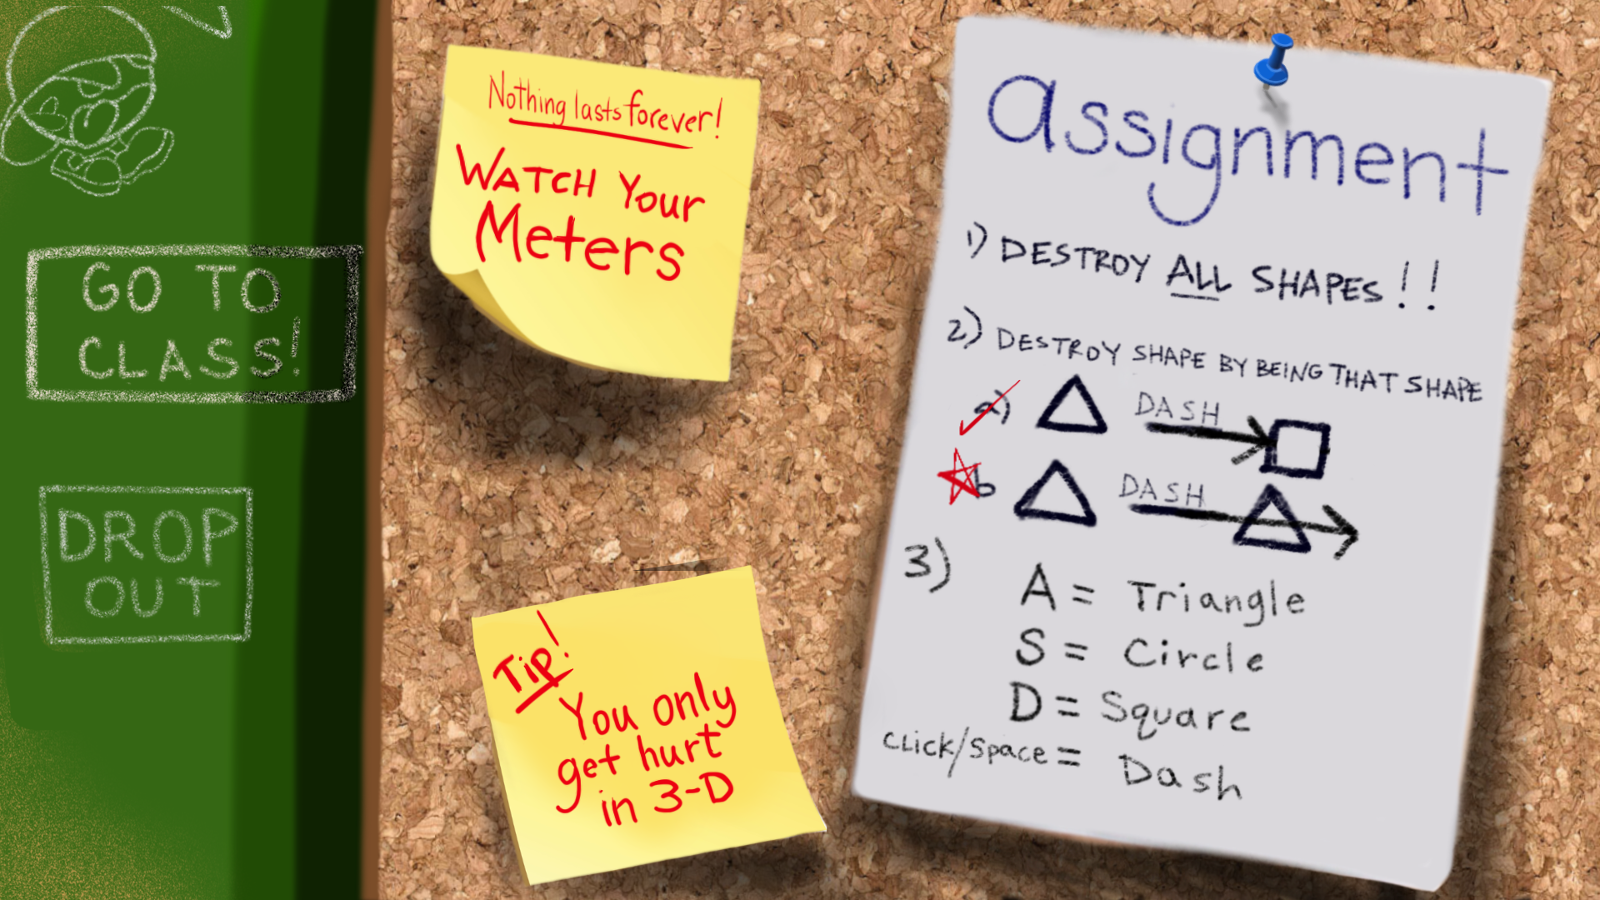 GO TO
CLASS!
DROP
OUT
Nothing lasts forever!
WATCH Your
Meters
Tip!
You only
get hurt
in 3-D
assignment
1) DESTROY ALL SHAPES!!
2) DESTROY SHAPE BY BEING THAT SHAPE
a) DASH
b DASH
3)
A = Triangle
S = Circle
D = Square
CLICK/Space = Dash